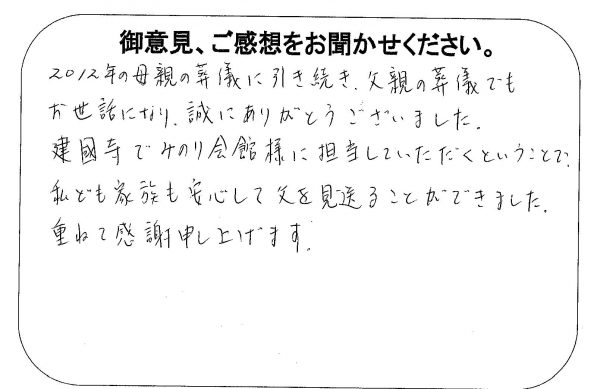 御意見、ご感想をお聞かせください。
2012年の母親の葬儀に引き続き、父親の葬儀でも
お世話になり、誠にありがとうございました。
建國寺でみのり会館様に担当していただくということで、
私ども家族も安心して父を見送ることができました。
重ねて感謝申し上げます。